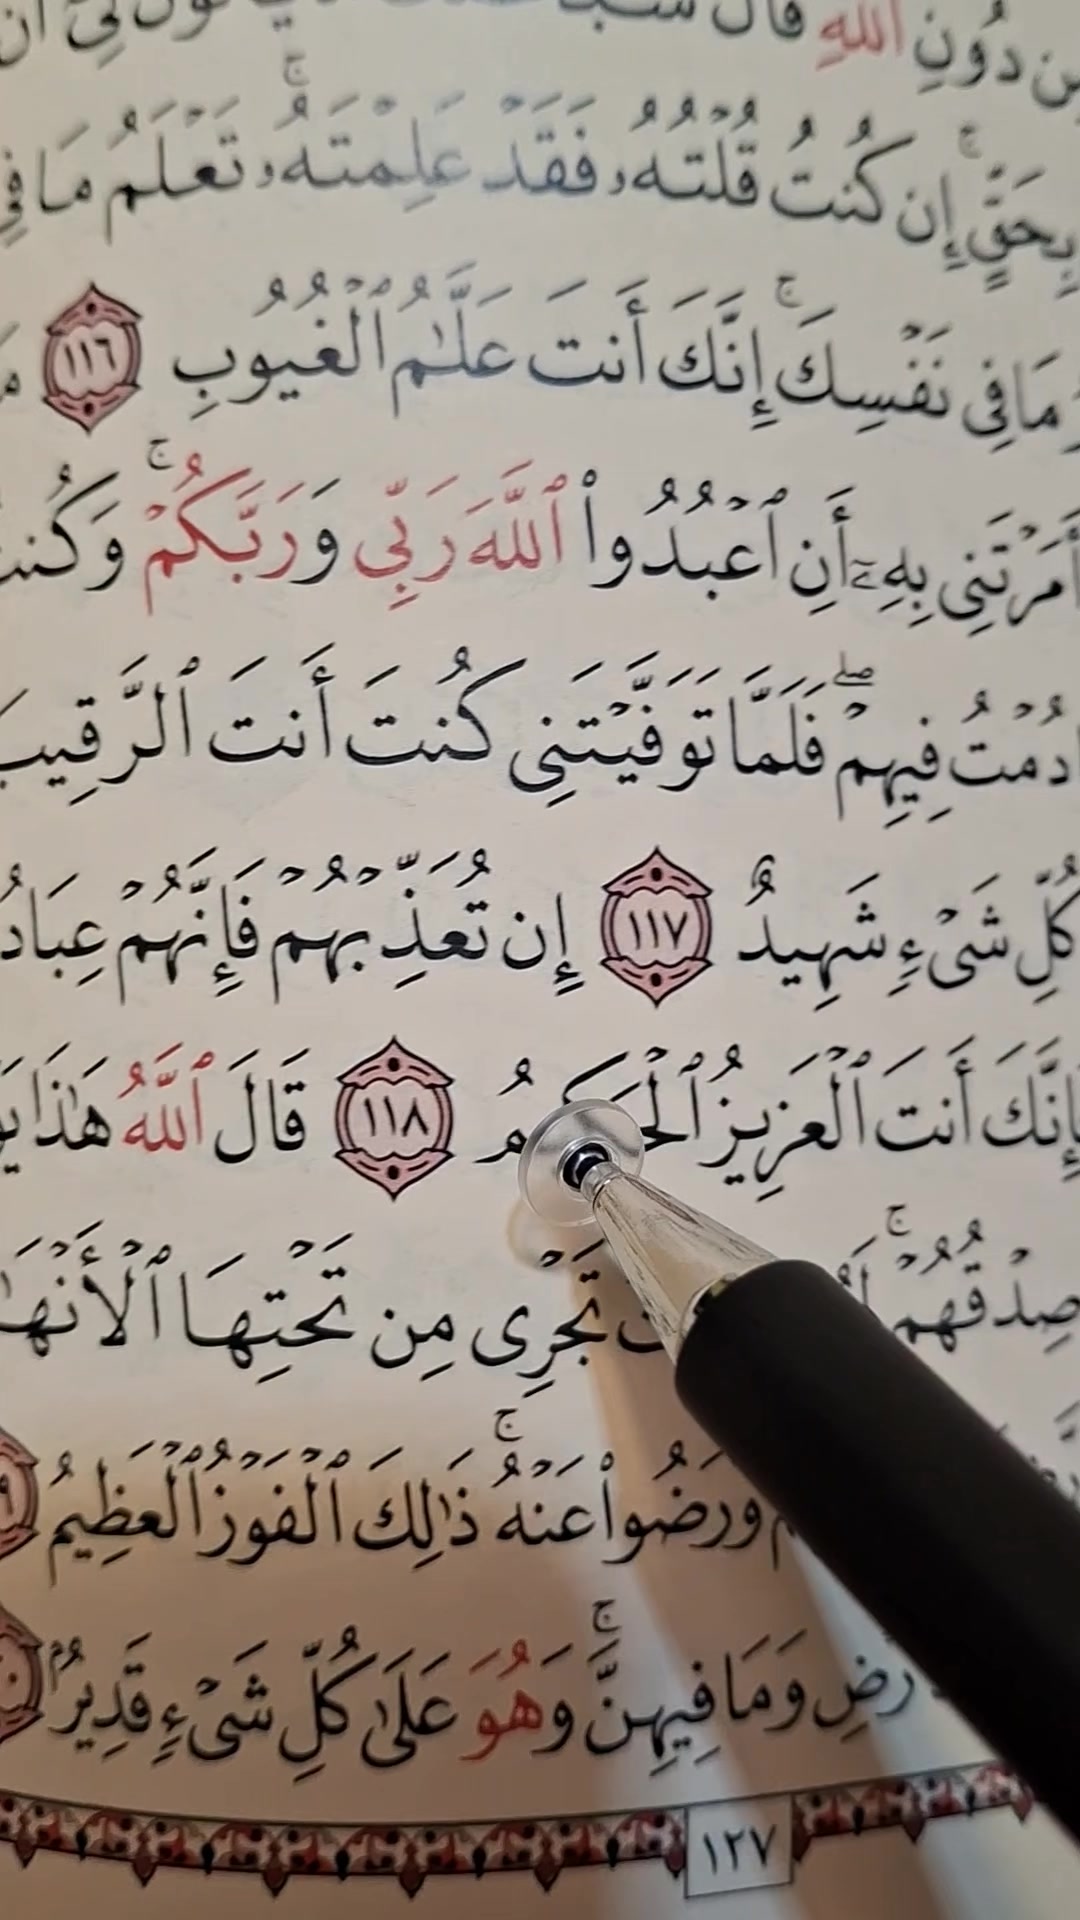 دُونِ ٱللَّهِ قَالَ
بِحَقٍّ ۚ إِن كُنتُ قُلْتُهُۥ فَقَدْ عَلِمْتَهُۥ ۚ تَعْلَمُ مَا فِى
مَا فِى نَفْسِكَ ۚ إِنَّكَ أَنتَ عَلَّٰمُ ٱلْغُيُوبِ ١١٦
أَمَرْتَنِى بِهِۦٓ أَنِ ٱعْبُدُوا۟ ٱللَّهَ رَبِّى وَرَبَّكُمْ ۚ وَكُنتُ
دُمْتُ فِيهِمْ ۖ فَلَمَّا تَوَفَّيْتَنِى كُنتَ أَنتَ ٱلرَّقِيبَ
كُلِّ شَىْءٍ شَهِيدٌ ١١٧ إِن تُعَذِّبْهُمْ فَإِنَّهُمْ عِبَادُ
إِنَّكَ أَنتَ ٱلْعَزِيزُ ٱلْحَكِيمُ ١١٨ قَالَ ٱللَّهُ هَٰذَا
صِدْقُهُمْ ۚ تَجْرِى مِن تَحْتِهَا ٱلْأَنْهَٰ
وَرَضُوا۟ عَنْهُ ۚ ذَٰلِكَ ٱلْفَوْزُ ٱلْعَظِيمُ
وَمَا فِيهِنَّ ۚ وَهُوَ عَلَىٰ كُلِّ شَىْءٍ قَدِيرٌۢ
١٢٧